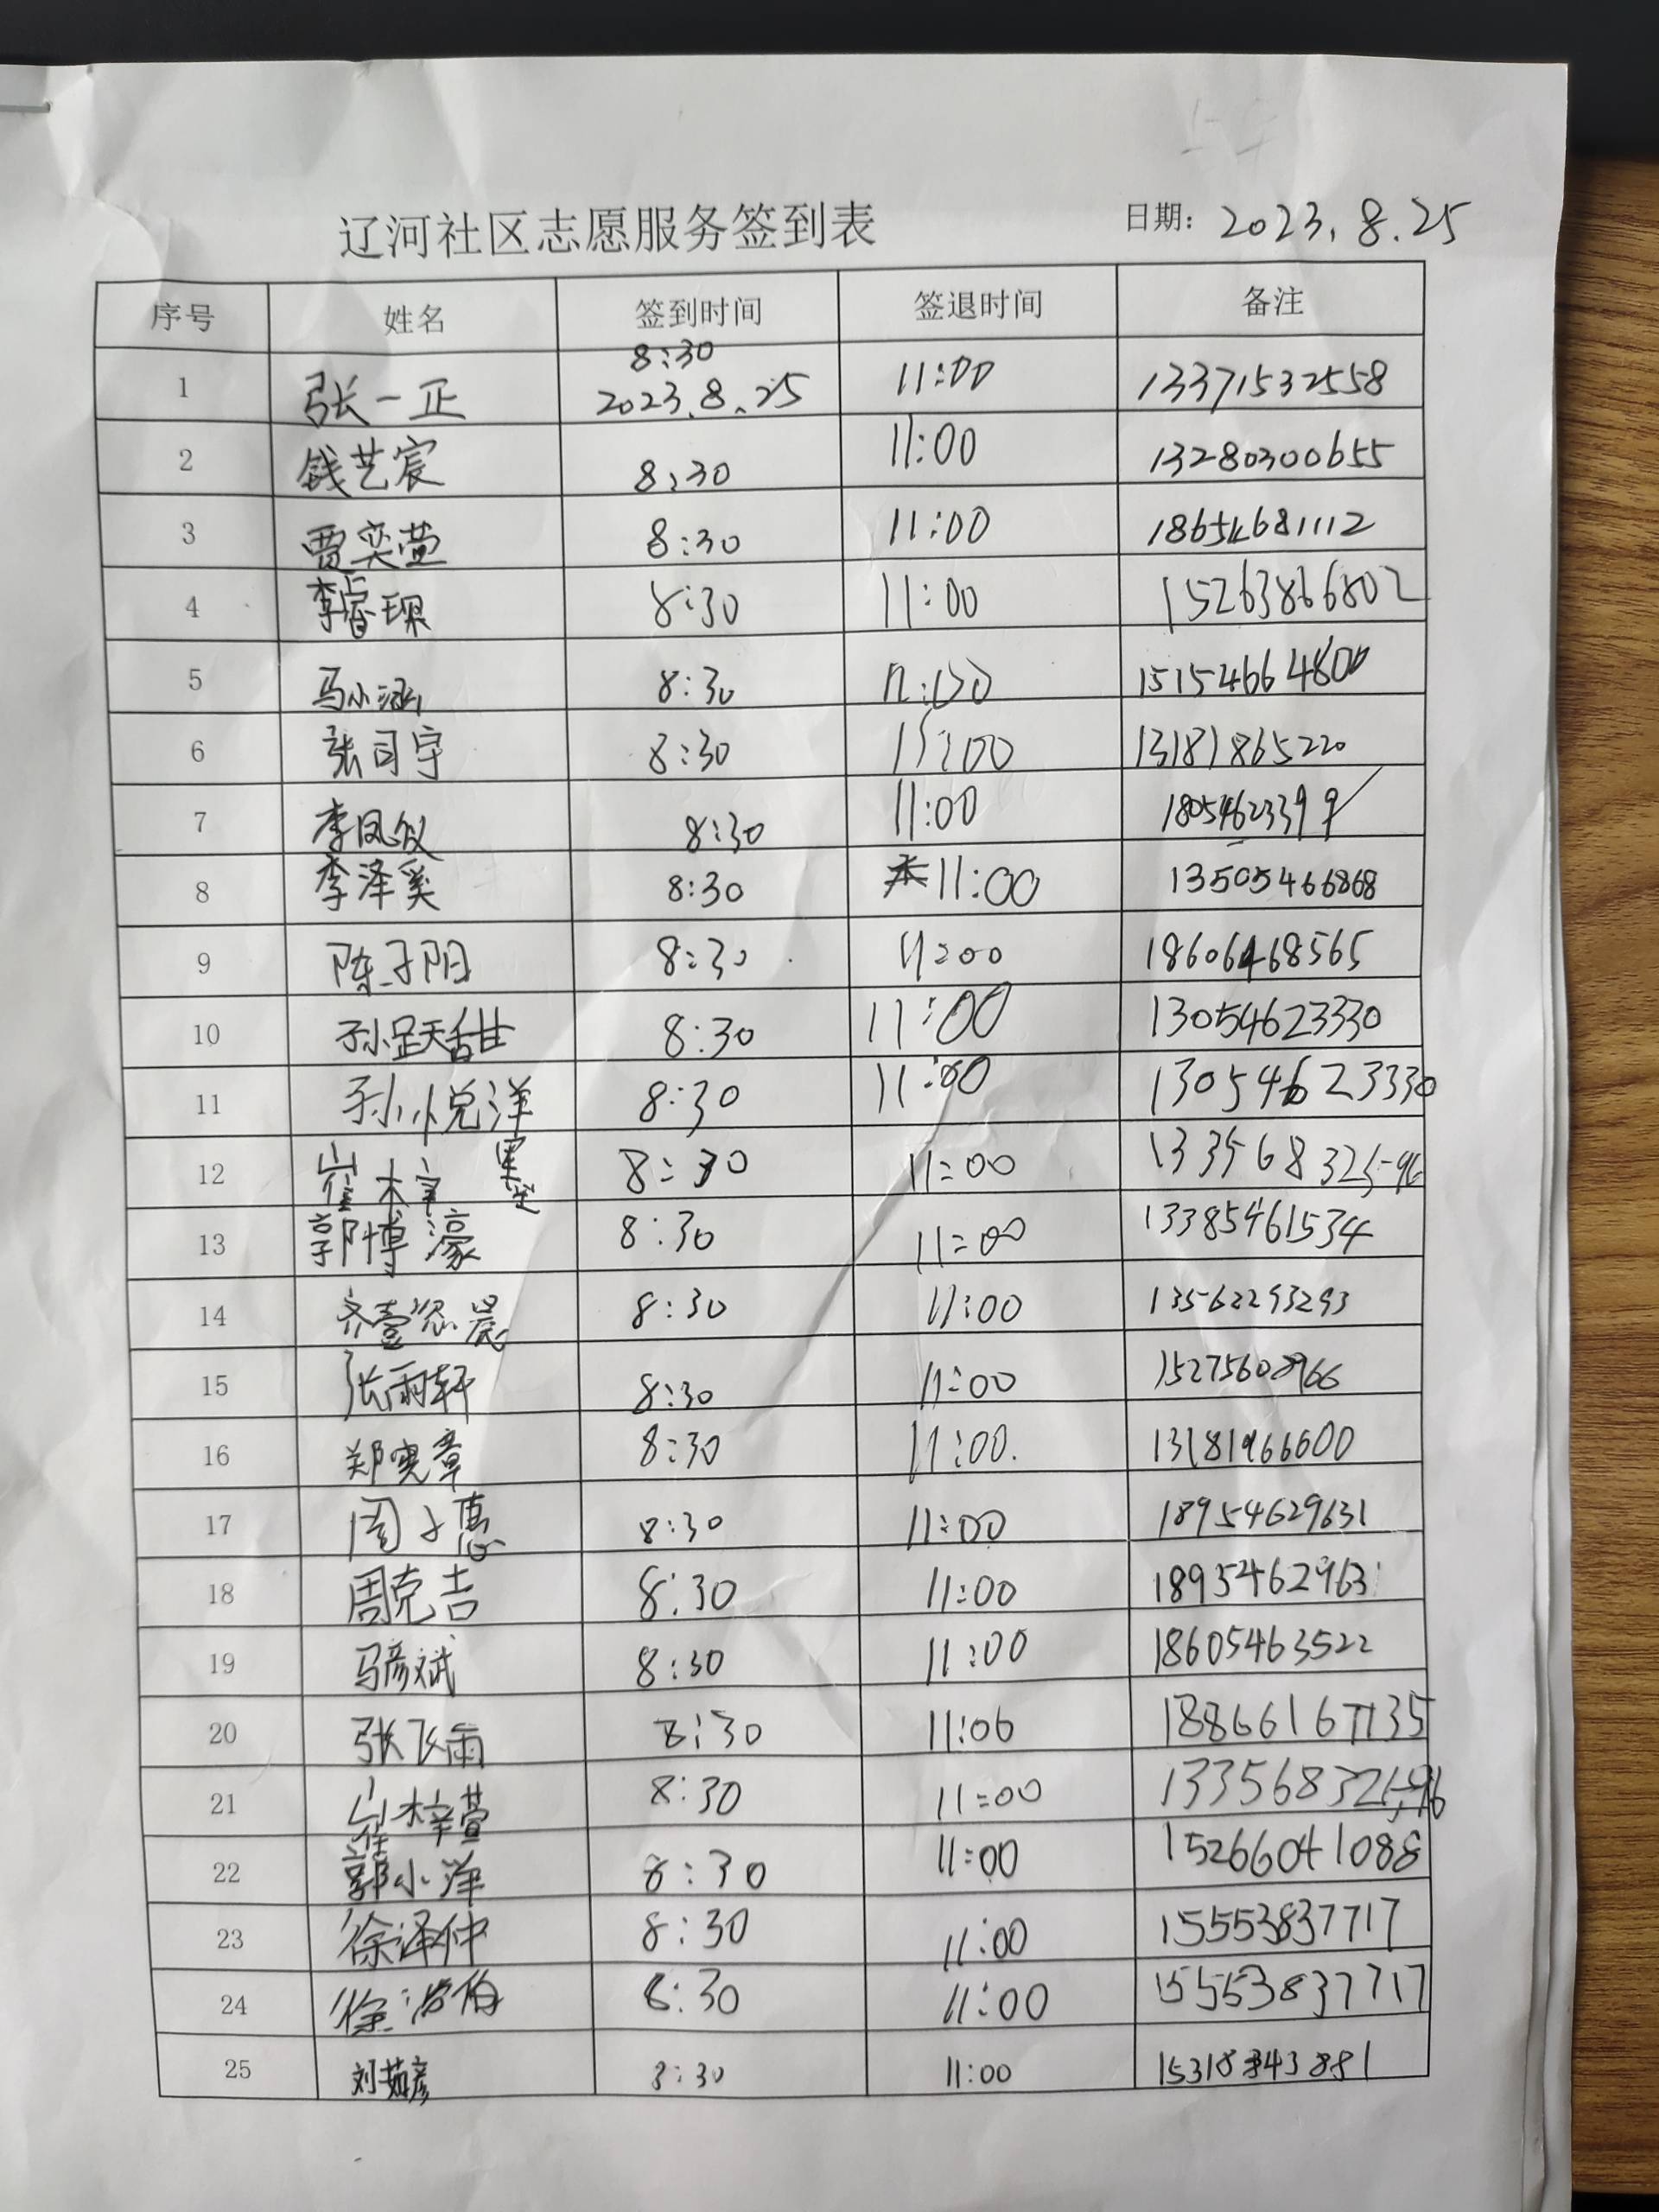 辽河社区志愿服务签到表 日期: 2023.8.25
序号 姓名 签到时间 签退时间 备注
1 张一正 8:30 2023.8.25 11:00 13371532558
2 钱艺宸 8:30 11:00 13280300655
3 贾奕萱 8:30 11:00 18654681112
4 李睿琛 8:30 11:00 15263866802
5 马小涵 8:30 11:00 15154664800
6 张司宇 8:30 11:00 13181865220
7 李凤仪 8:30 11:00 18054623399
8 李泽奚 8:30 11:00 13505466868
9 陈子阳 8:30 11:00 18606468565
10 孙跃甜 8:30 11:00 13054623330
11 孙悦洋 8:30 11:00 13054623330
12 崔木 8:30 11:00 13356832596
13 郭博濠 8:30 11:00 13385461534
14 齐壹 晨 8:30 11:00 13562293293
15 张雨轩 8:30 11:00 15275608966
16 郑奕章 8:30 11:00. 13181966600
17 周子惠 8:30 11:00 18954629631
18 周克吉 8:30 11:00 18954629631
19 马彦斌 8:30 11:00 18605463522
20 张飞雨 8:30 11:00 18866167135
21 崔梓萱 8:30 11:00 13356832596
22 郭小洋 8:30 11:00 15266041088
23 徐泽仲 8:30 11:00 15553837717
24 徐 伯 8:30 11:00 15553837717
25 刘茹彦 8:30 11:00 15318343881